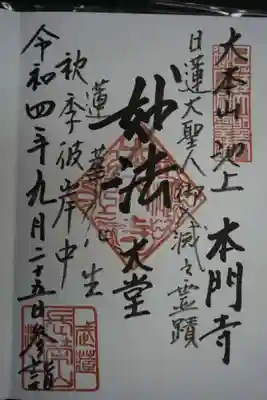 大本山池上 本門寺
日蓮大聖人御入滅之霊蹟
妙法
大堂
蓮華化生
秋季彼岸中
令和四年九月二十五日参詣